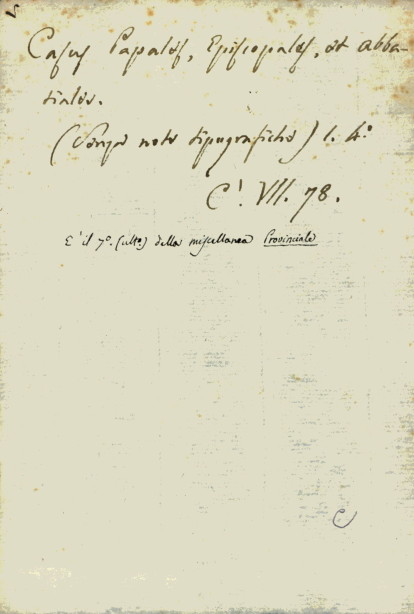 Casus Papales, Episcopales, et abba-
tiales.
(Senza note tipografiche) l. 4°
C'. VII. 78.
E' il 7°. (ulto) della miscellanea Provinciale
C